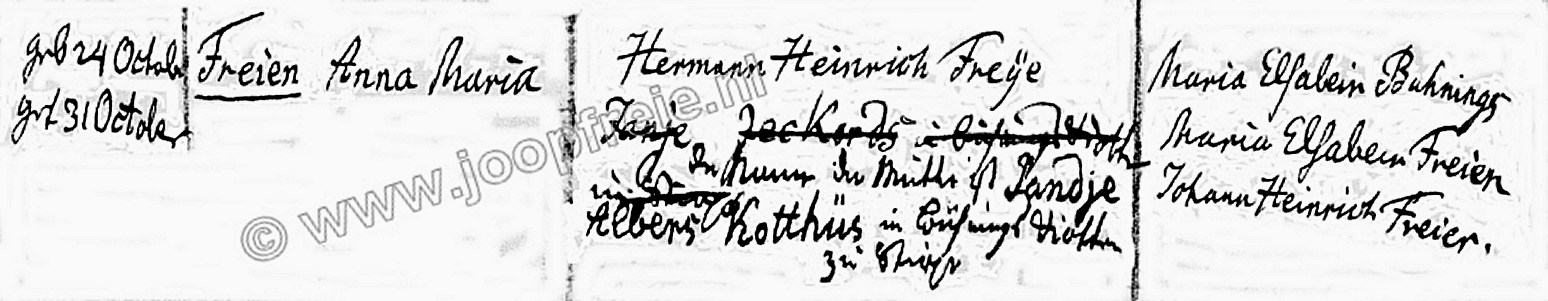 geb 24 October
get 31 October
Freien Anna Maria
Hermann Heinrich Freÿe
Tanje Jeckords
der Mann der Mutter ist Tandje
Albers Kotthüs in Bührings Kotten
zu
Maria Elsabein Buhnings
Maria Elsabein Freien
Johann Heinrich Freier.
© www.joopfreje.nl